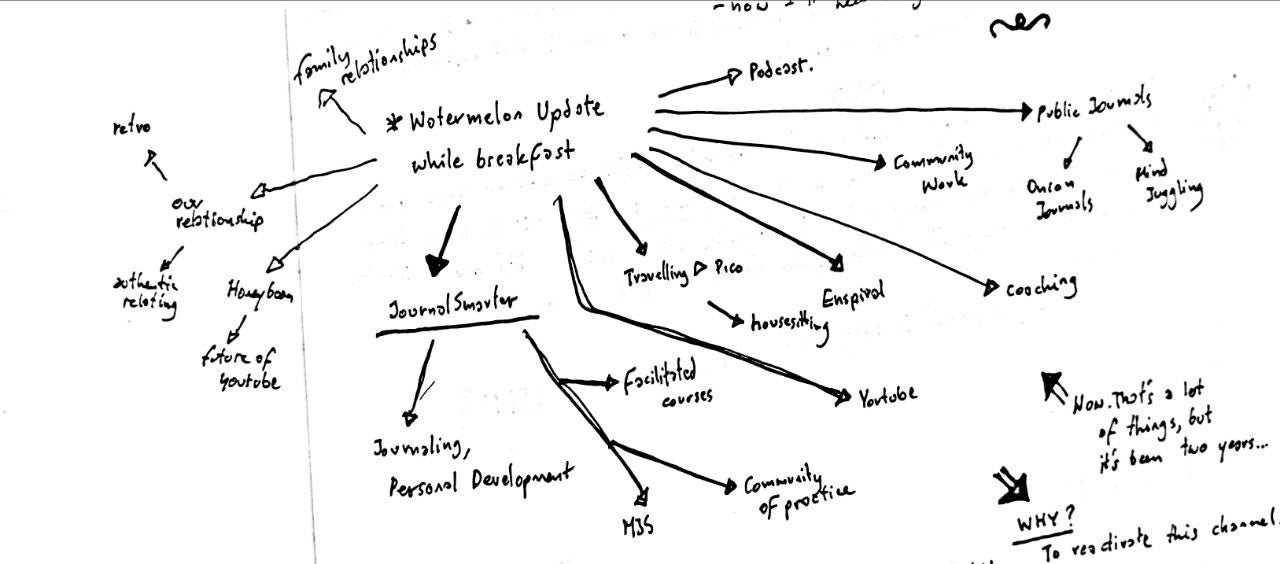 - how I'm
Family
relationships
Podcast.
* Watermelon Update
while breakfast
Public Journals
retro
Community
Work
Onion
Journals
Mind
Juggling
our
relationship
authentic
relating
Honeybean
future of
youtube
Travelling ▷ Pico
housesitting
Enspiral
coaching
JournalSmarter
Facilitated
courses
Youtube
Now. That's a lot
of things, but
it's been two years...
Journaling,
Personal Development
Community
of practice
MJS
WHY?
To reactivate this channel.